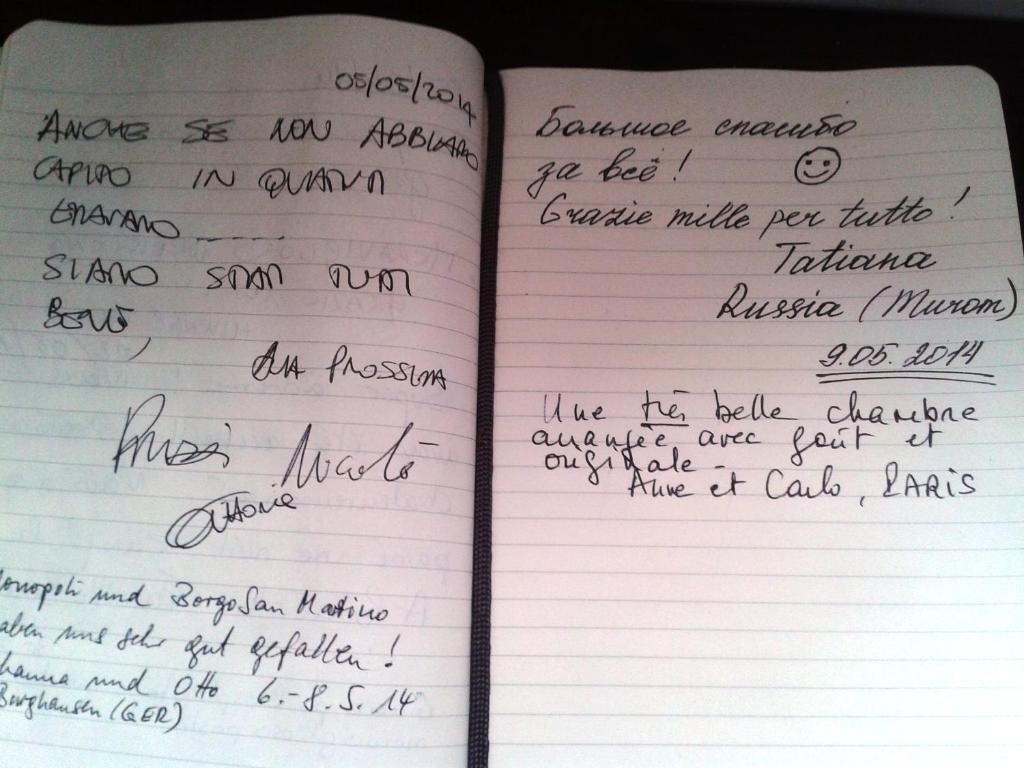 05/05/2014
ANCHE SE NON ABBIAMO
CAPITO IN QUANTI
ERAVAMO -----
SIAMO STATI TUTTI
BENE,
ALLA PROSSIMA
Nicolò
onopoli und Borgo San Martino
aben uns sehr gut gefallen!
hanna und Otto 6.-8.5.14
Burghausen (GER)
Большое спасибо
за всё! ☺
Grazie mille per tutto!
Tatiana
Russia (Murom)
9.05.2014
Une très belle chambre
arrangée avec goût et
originale.
Anne et Carlo, PARIS